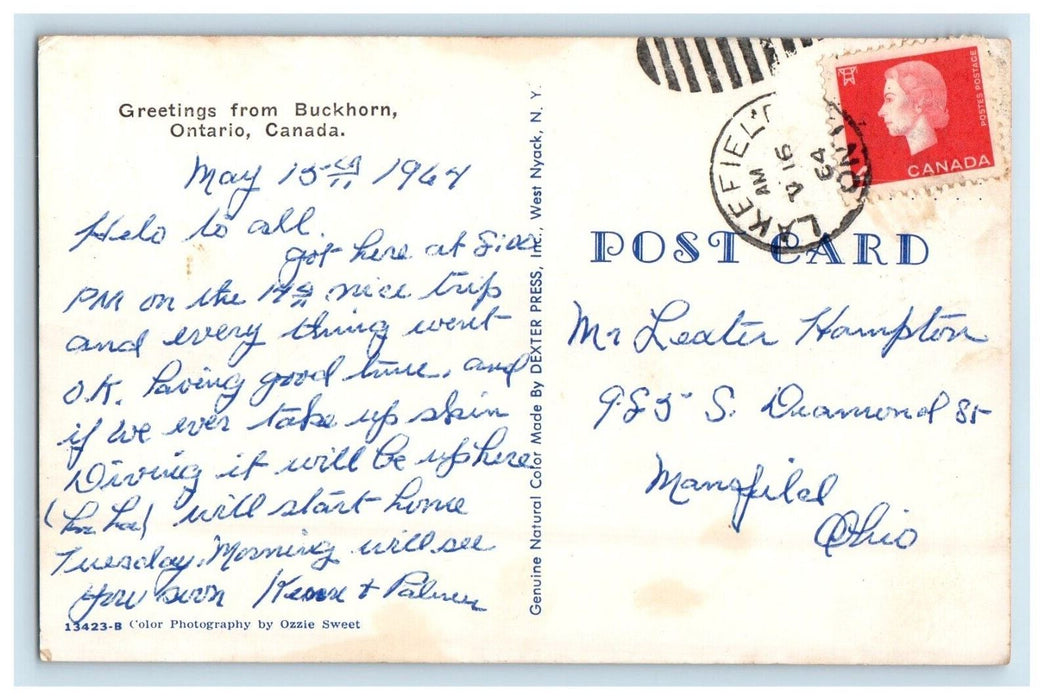 Greetings from Buckhorn,
Ontario, Canada.
May 15th 1964
Helo to all.
got here at 5:00
PM on the 14th nice trip
and every thing went
O.K. Having good time, and
if we ever take up skin
Diving it will be up here
(ha ha) will start home
Tuesday, Morning will see
you soon & Palmer
13423-B Color Photography by Ozzie Sweet
Genuine Natural Color Made By DEXTER PRESS, Inc., West Nyack, N. Y.
LAKEFIELD
AM
V 16
64
ONT
POSTES POSTAGE
CANADA
POST CARD
Mr Lester Hampton
985 S. Diamond St
Mansfield
Ohio